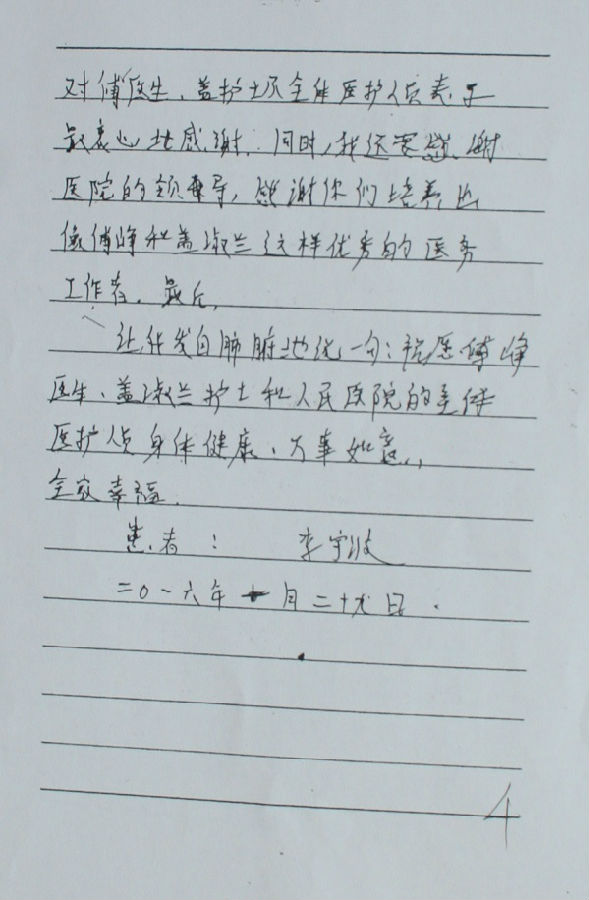 对傅医生、盖护士及全体医护人员表示
最衷心地感谢. 同时, 我还要感谢
医院的领导, 感谢你们培养出
像傅峰和盖淑兰这样优秀的医务
工作者. 最后,
让我发自肺腑地说一句: 祝愿傅峰
医生、盖淑兰护士和人民医院的全体
医护人员身体健康、万事如意,
全家幸福.
患者: 李宇波
二0一六年十月二十九日.
4